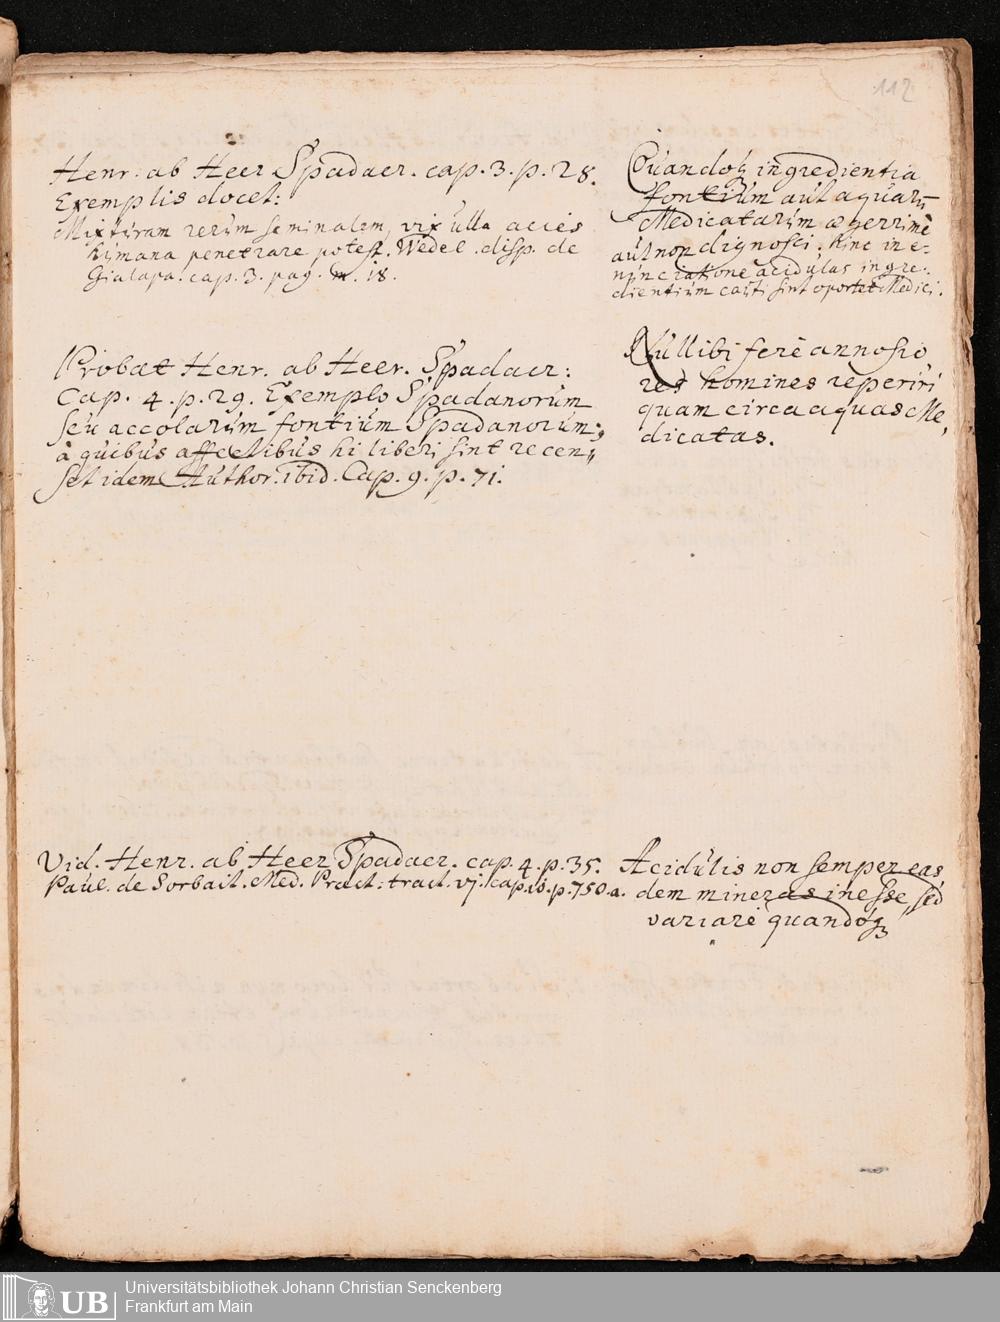 112
Henr. ab Heer Spadacr. cap. 3. p. 28.
Exemplis docet:
Mixturam rerum seminalem, vix ulla acies
humana penetrare potest. Wedel. disp. de
Gialapa. cap. 3. pag. m. 18.
Quandoq; ingredientia
fontium aut aquarū
Medicatarum ægerrimè
aut non dignosci. Hinc in e-
nunc ratione acidulas ingre-
dientium casti sint oportet Medici.
Probat Henr. ab Heer. Spadacr:
Cap. 4. p. 29. Exemplo Spadanorum
seu accolarum fontium Spadanorum;
à quibus affectibus hi liberi sint recen„
set idem Author. ibid. Cap. 9. p. 71.
Nullibi ferè annosio
res homines reperiri
quam circa aquas Me,
dicatas.
Vid. Henr. ab Heer Spadacr. cap. 4. p. 35.
Paul. de Sorbait. Med. Pract: tract. vj. cap. 16. p. 750. a.
Acidulis non semper eas
dem mineras inesse, sed
variare quandoq;
UB
Universitätsbibliothek Johann Christian Senckenberg
Frankfurt am Main